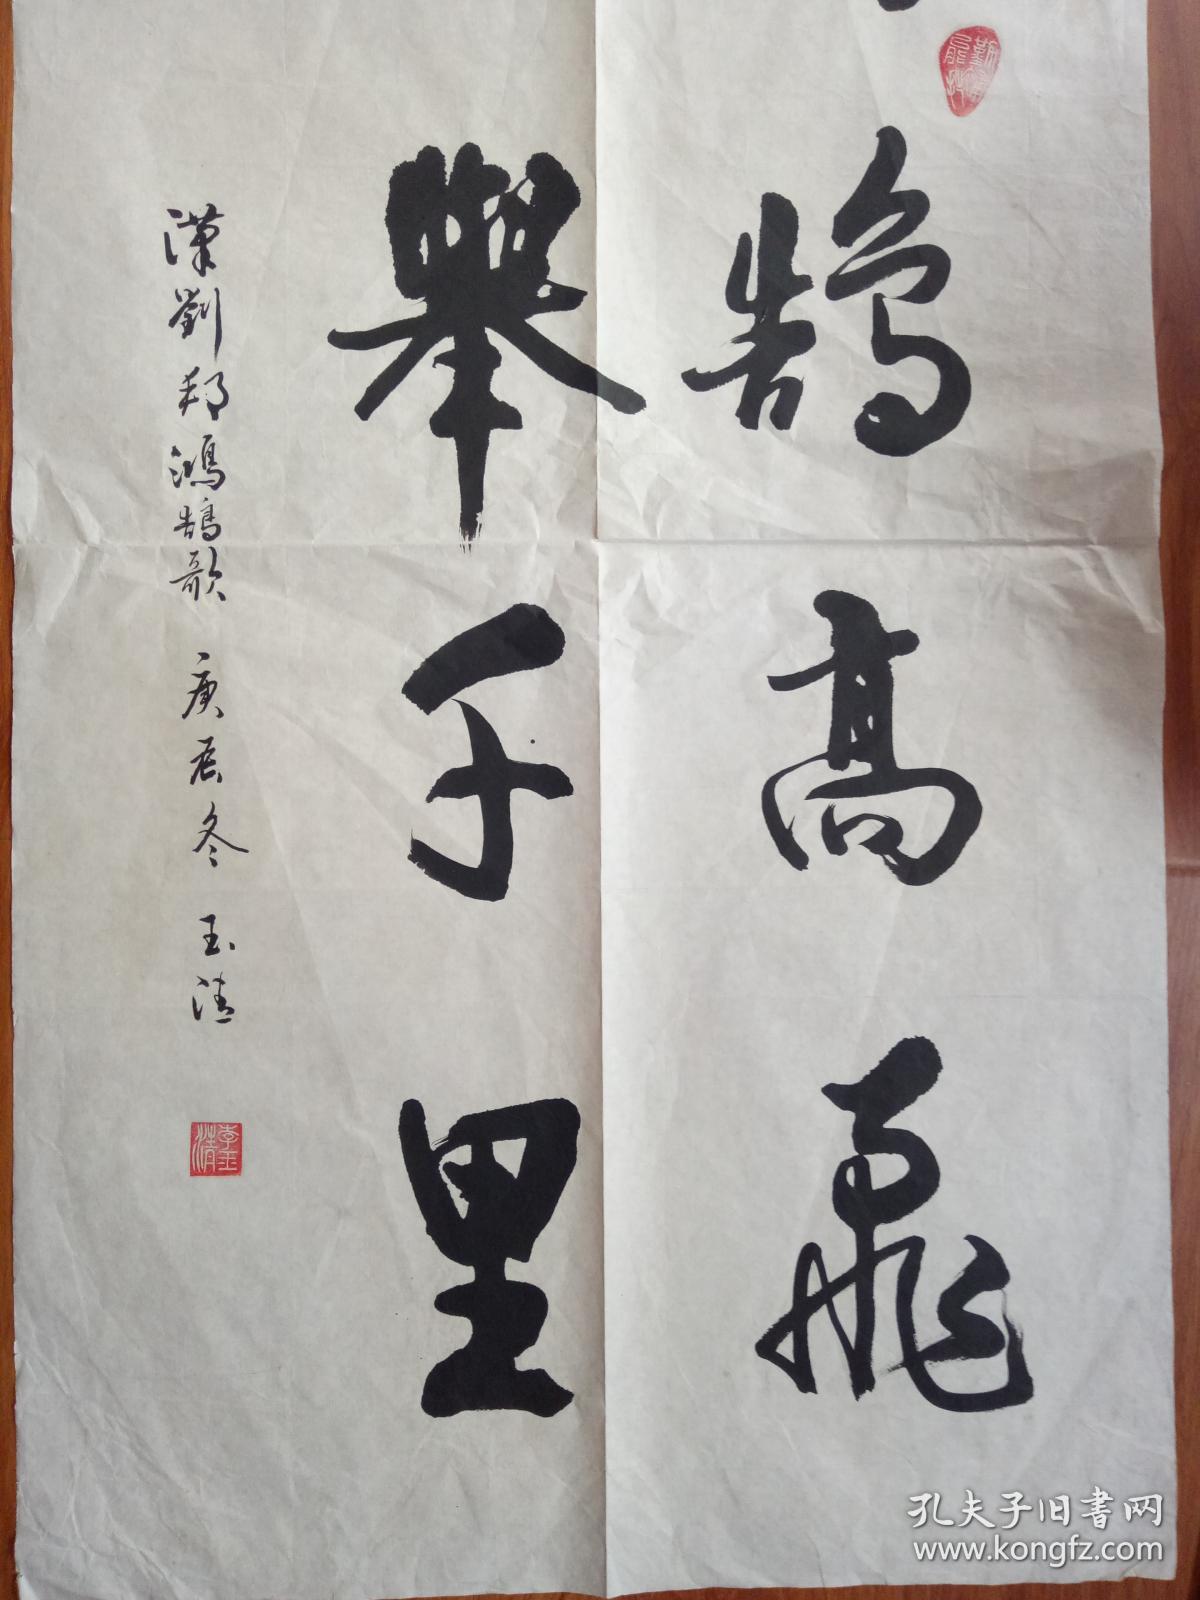 鹄高飛
舉千里
漢劉邦鴻鵠歌 庚辰冬 玉清
李玉清
孔夫子旧书网
www.kongfz.com